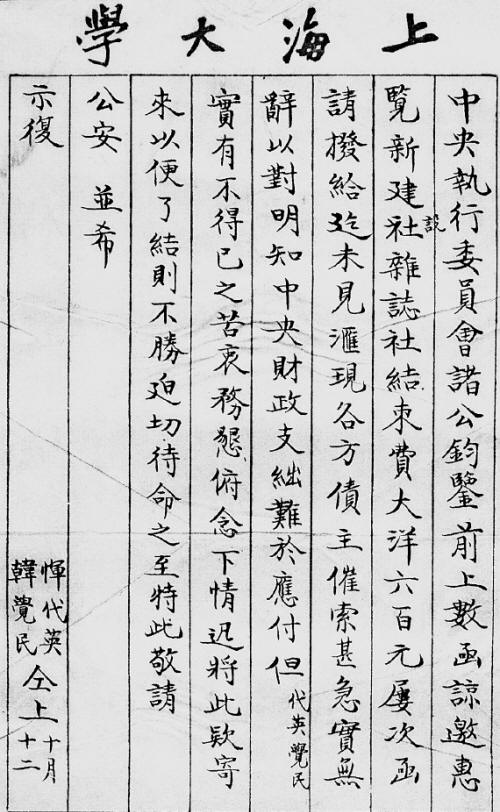 上海大學
中央執行委員會諸公鈞鑒前上數函諒邀惠
覽新建設社雜誌社結束費大洋六百元屢次函
請撥給迄未見滙現各方債主催索甚急實無
辭以對明知中央財政支絀難於應付但代英覺民
實有不得已之苦衷務懇俯念下情迅將此欵寄
來以便了結則不勝迫切待命之至特此敬請
公安 並希
示復
惲代英
韓覺民
仝上 十月
十二